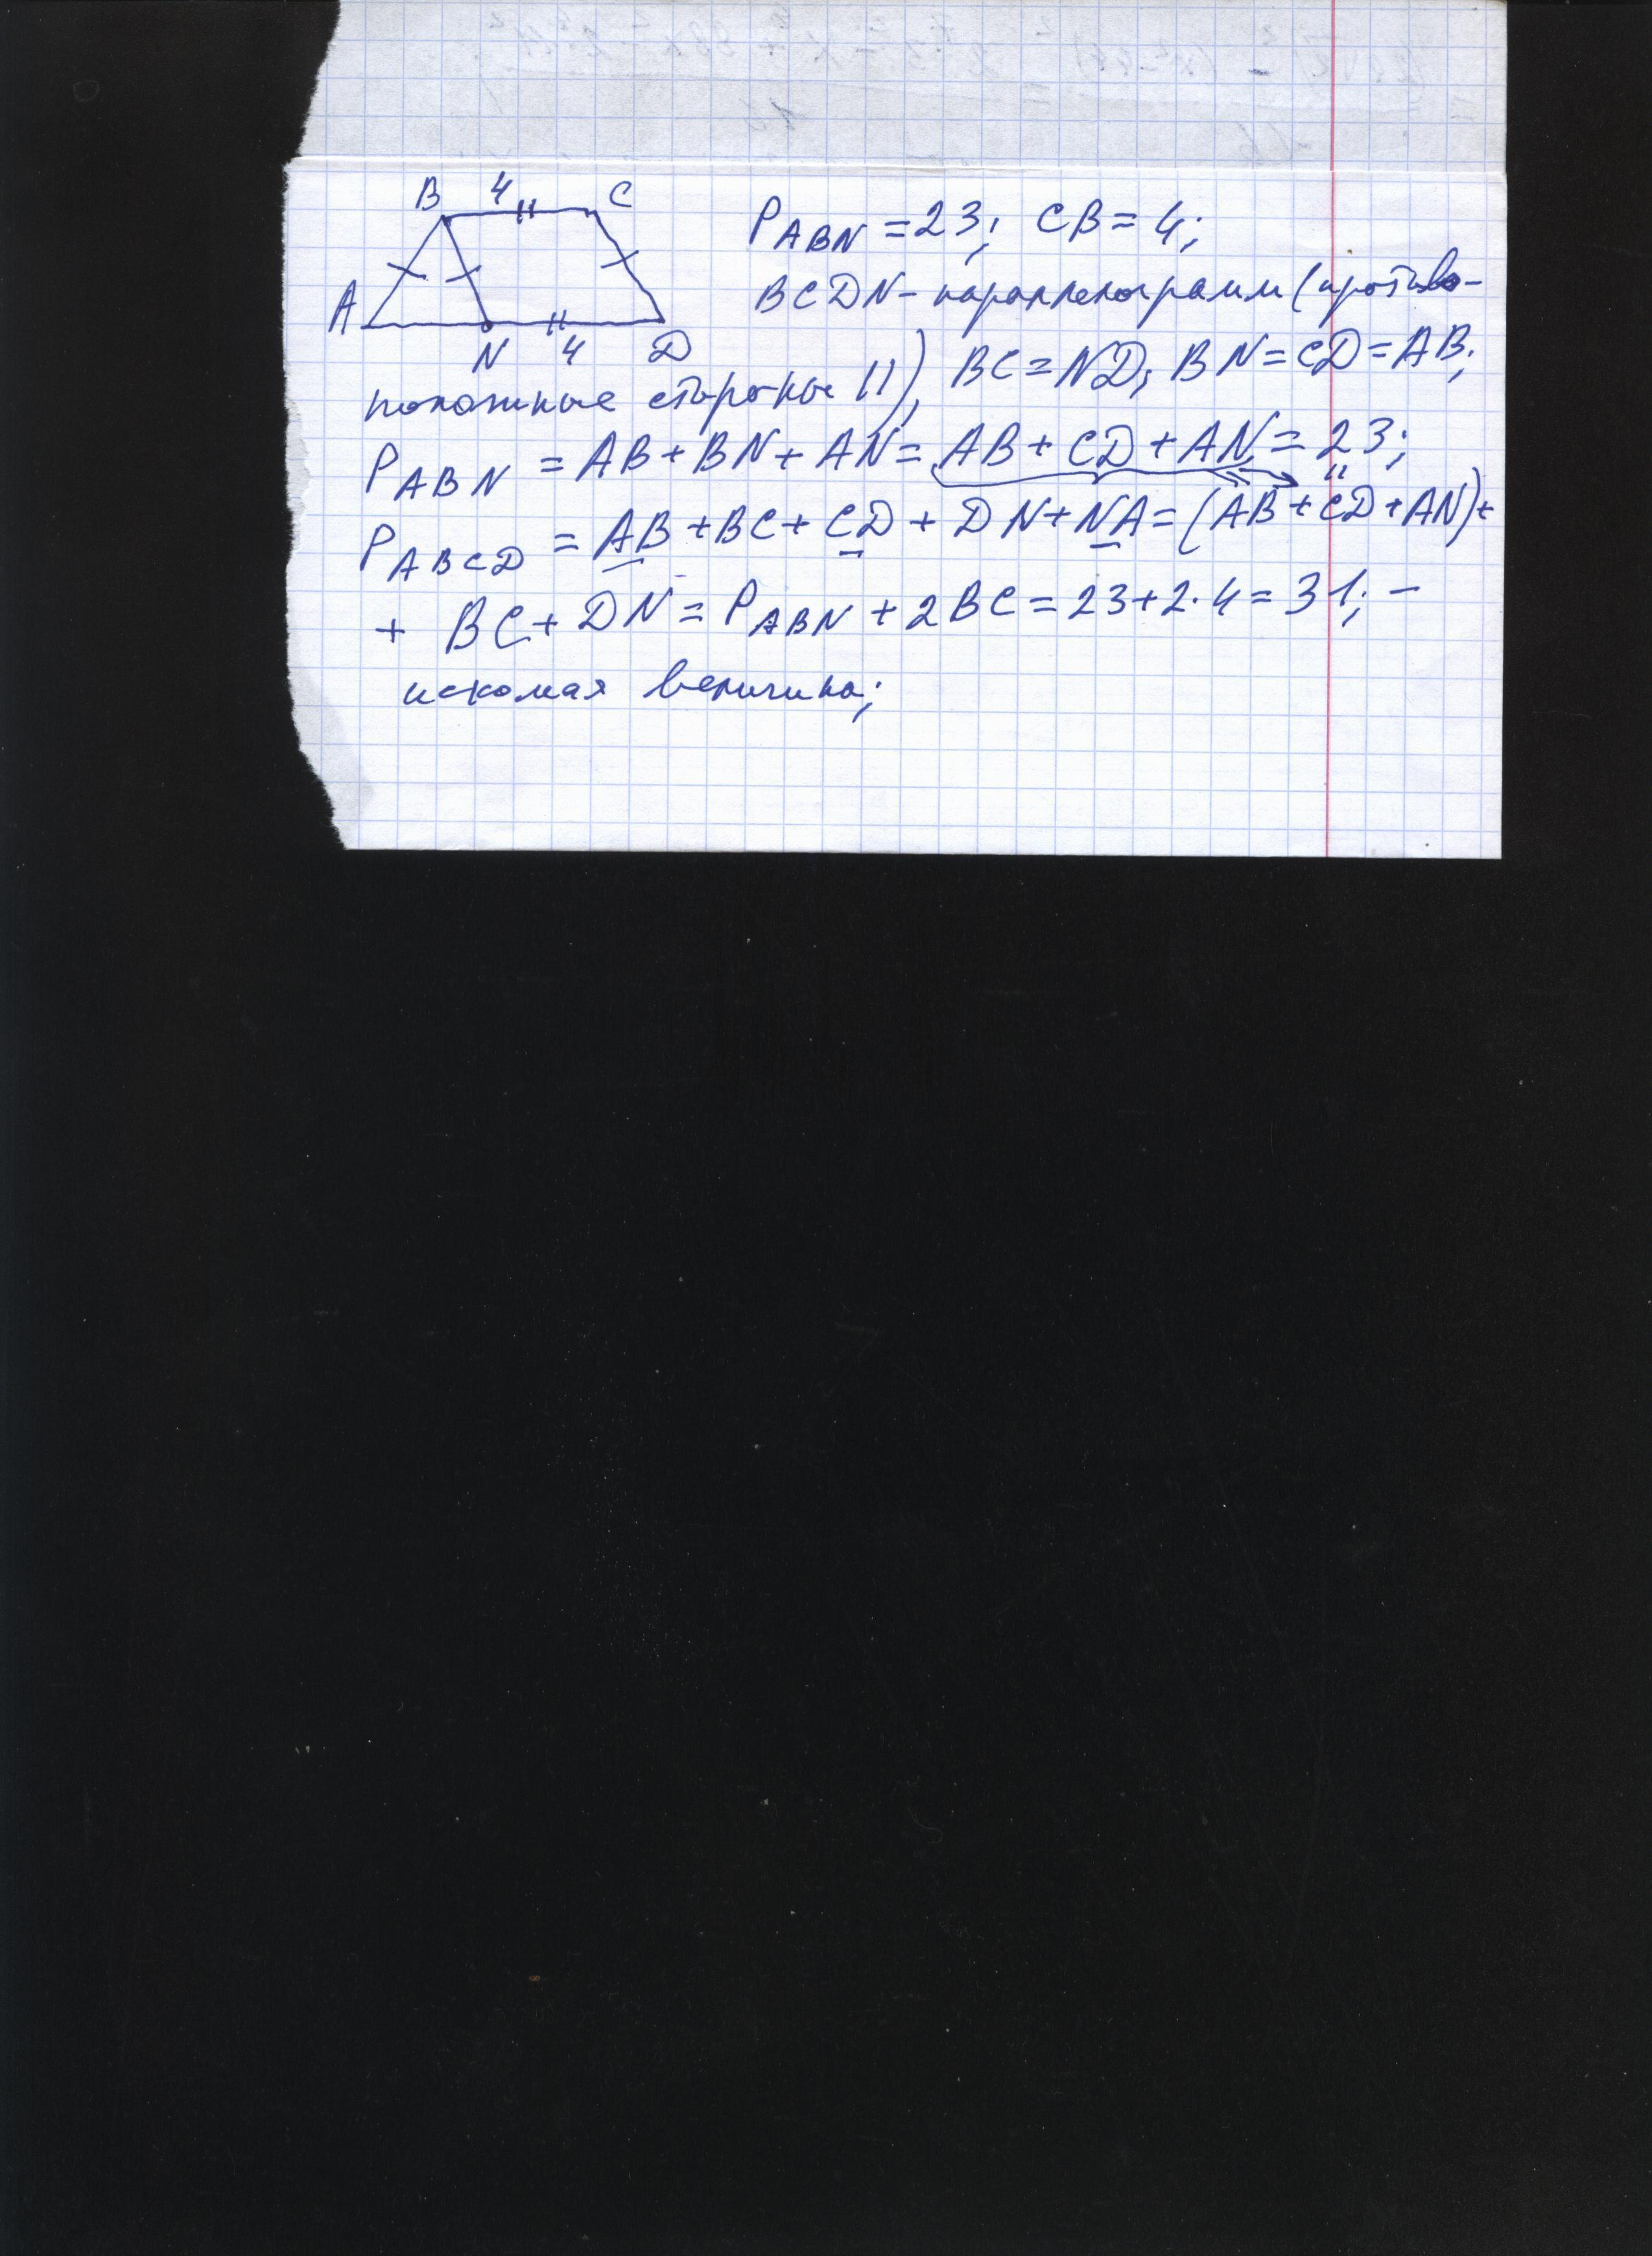 B 4 C
A
N 4 D
P ABN = 23; CB = 4;
BCDN - параллелограмм (противо-
положные стороны ||), BC = ND, BN = CD = AB;
P ABN = AB + BN + AN = AB + CD + AN = 23;
P ABCD = AB + BC + CD + DN + NA = (AB + CD + AN) +
+ BC + DN = P ABN + 2BC = 23 + 2·4 = 31; -
искомая величина;